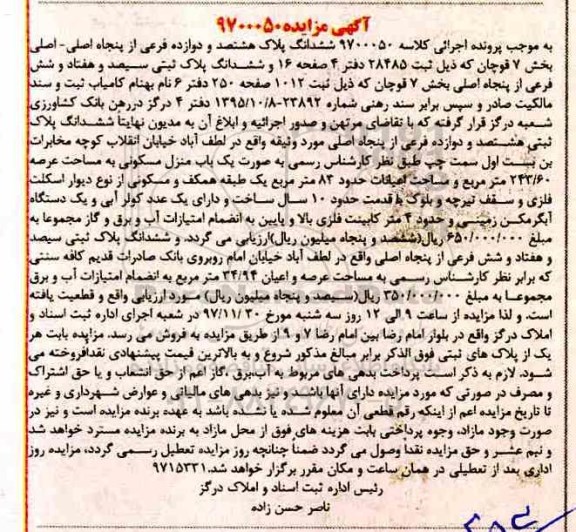 آگهی مزایده ۹۷۰۰۰۵۰
به موجب پرونده اجرائی کلاسه ۹۷۰۰۰۵۰ ششدانگ پلاک هشتصد و دوازده فرعی از پنجاه اصلی- اصلی
بخش ۷ قوچان که ذیل ثبت ۲۸۴۸۵ دفتر ۴ صفحه ۱۶ و ششدانگ پلاک ثبتی سیصد و هفتاد و شش
فرعی از پنجاه اصلی بخش ۷ قوچان که ذیل ثبت ۱۰۱۲ صفحه ۲۵۰ دفتر ۶ نام بهنام کامیاب ثبت و سند
مالکیت صادر و سپس برابر سند رهنی شماره ۲۳۸۹۲-۱۳۹۵/۱۰/۸ دفتر ۴ درگز دررهن بانک کشاورزی
شعبه درگز قرار گرفته که با تقاضای مرتهن و صدور اجرائیه و ابلاغ آن به مدیون نهایتاً ششدانگ پلاک
ثبتی هشتصد و دوازده فرعی از پنجاه اصلی مورد وثیقه واقع در لطف آباد خیابان انقلاب کوچه مخابرات
بن بست اول سمت چپ طبق نظر کارشناس رسمی به صورت یک باب منزل مسکونی به مساحت عرصه
۲۴۳/۶۰ متر مربع و مساحت اعیانات حدود ۸۳ متر مربع یک طبقه همکف و مسکونی از نوع دیوار اسکلت
فلزی و سقف تیرچه و بلوک با قدمت حدود ۱۰ سال ساخت و دارای یک عدد کولر آبی و یک دستگاه
آبگرمکن زمینی و حدود ۴ متر کابینت فلزی بالا و پایین به انضمام امتیازات آب و برق و گاز مجموعا به
مبلغ ۶۵۰/۰۰۰/۰۰۰ ریال(ششصد و پنجاه میلیون ریال)ارزیابی می گردد. و ششدانگ پلاک ثبتی سیصد
و هفتاد و شش فرعی از پنجاه اصلی واقع در لطف آباد خیابان امام روبروی بانک صادرات قدیم کافه سنتی
که برابر نظر کارشناس رسمی به مساحت عرصه و اعیان ۳۴/۹۴ متر مربع به انضمام امتیازات آب و برق
مجموعـا به مبلغ ۳۵۰/۰۰۰/۰۰۰ ریال(سیصد و پنجاه میلیون ریال) مورد ارزیابی واقع و قطعیت یافته
است. و لذا مزایده از ساعت ۹ الی ۱۲ روز سه شنبه مورخ ۹۷/۱۱/۳۰ در شعبه اجرای اداره ثبت اسناد و
املاک درگز واقع در بلوار امام رضا بین امام رضا ۷ و ۹ از طریق مزایده به فروش می رسد. مزایده بابت هر
یک از پلاک های ثبتی فوق الذکر برابر مبالغ مذکور شروع و به بالاترین قیمت پیشنهادی نقدافروخته می
شود. لازم به ذکر است پرداخت بدهی های مربوط به آب،برق ،گاز اعم از حق انشعاب و یا حق اشتراک
و مصرف در صورتی که مورد مزایده دارای آنها باشد. و نیز بدهی های مالیاتی و عوارض شهرداری و غیره
تا تاریخ مزایده اعم از اینکه رقم قطعی آن معلوم شده یا نشده باشد به عهده برنده مزایده است و نیز در
صورت وجود مازاد، وجوه پرداختی بابت هزینه های فوق از محل مازاد به برنده مزایده مسترد خواهد شد
و نیم عشر و حق مزایده نقدا وصول می گردد ضمناً چنانچه روز مزایده تعطیل رسمی گردد، مزایده روز
اداری بعد از تعطیلی در همان ساعت و مکان مقرر برگزار خواهد شد. ۹۷۱۵۳۳۱
رئیس اداره ثبت اسناد و املاک درگز
ناصر حسن زاده